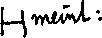 H meint: